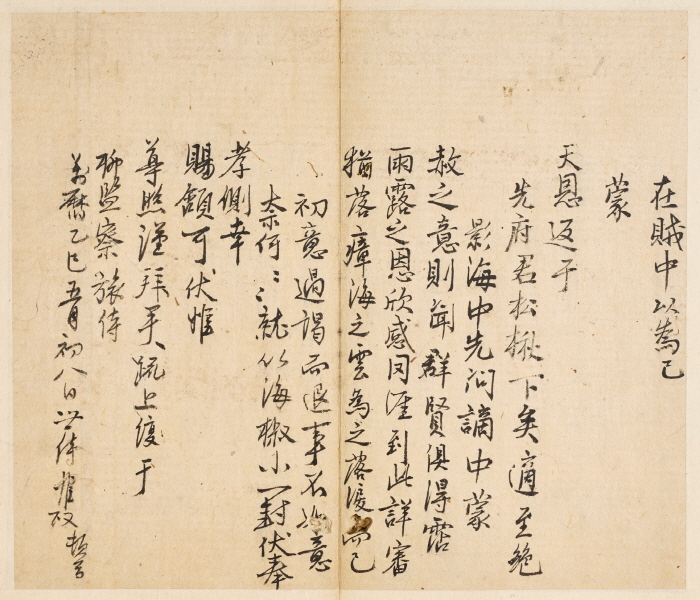 在賊中以焉已
蒙
天恩返于
先府君松楸下矣適至絶
影海中先问謫中蒙
赦之意則聞群賢俱得露
雨露之恩欣感罔涯到此詳審
猶落瘴海之雲為之落淚而已
初意過謁而退事不如意
奈何〻〻就以海椒小一封伏奉
孝側幸
賜領可伏惟
尊照謹拜 疏上復于
聊監察旅侍
萬曆乙巳五月初八日